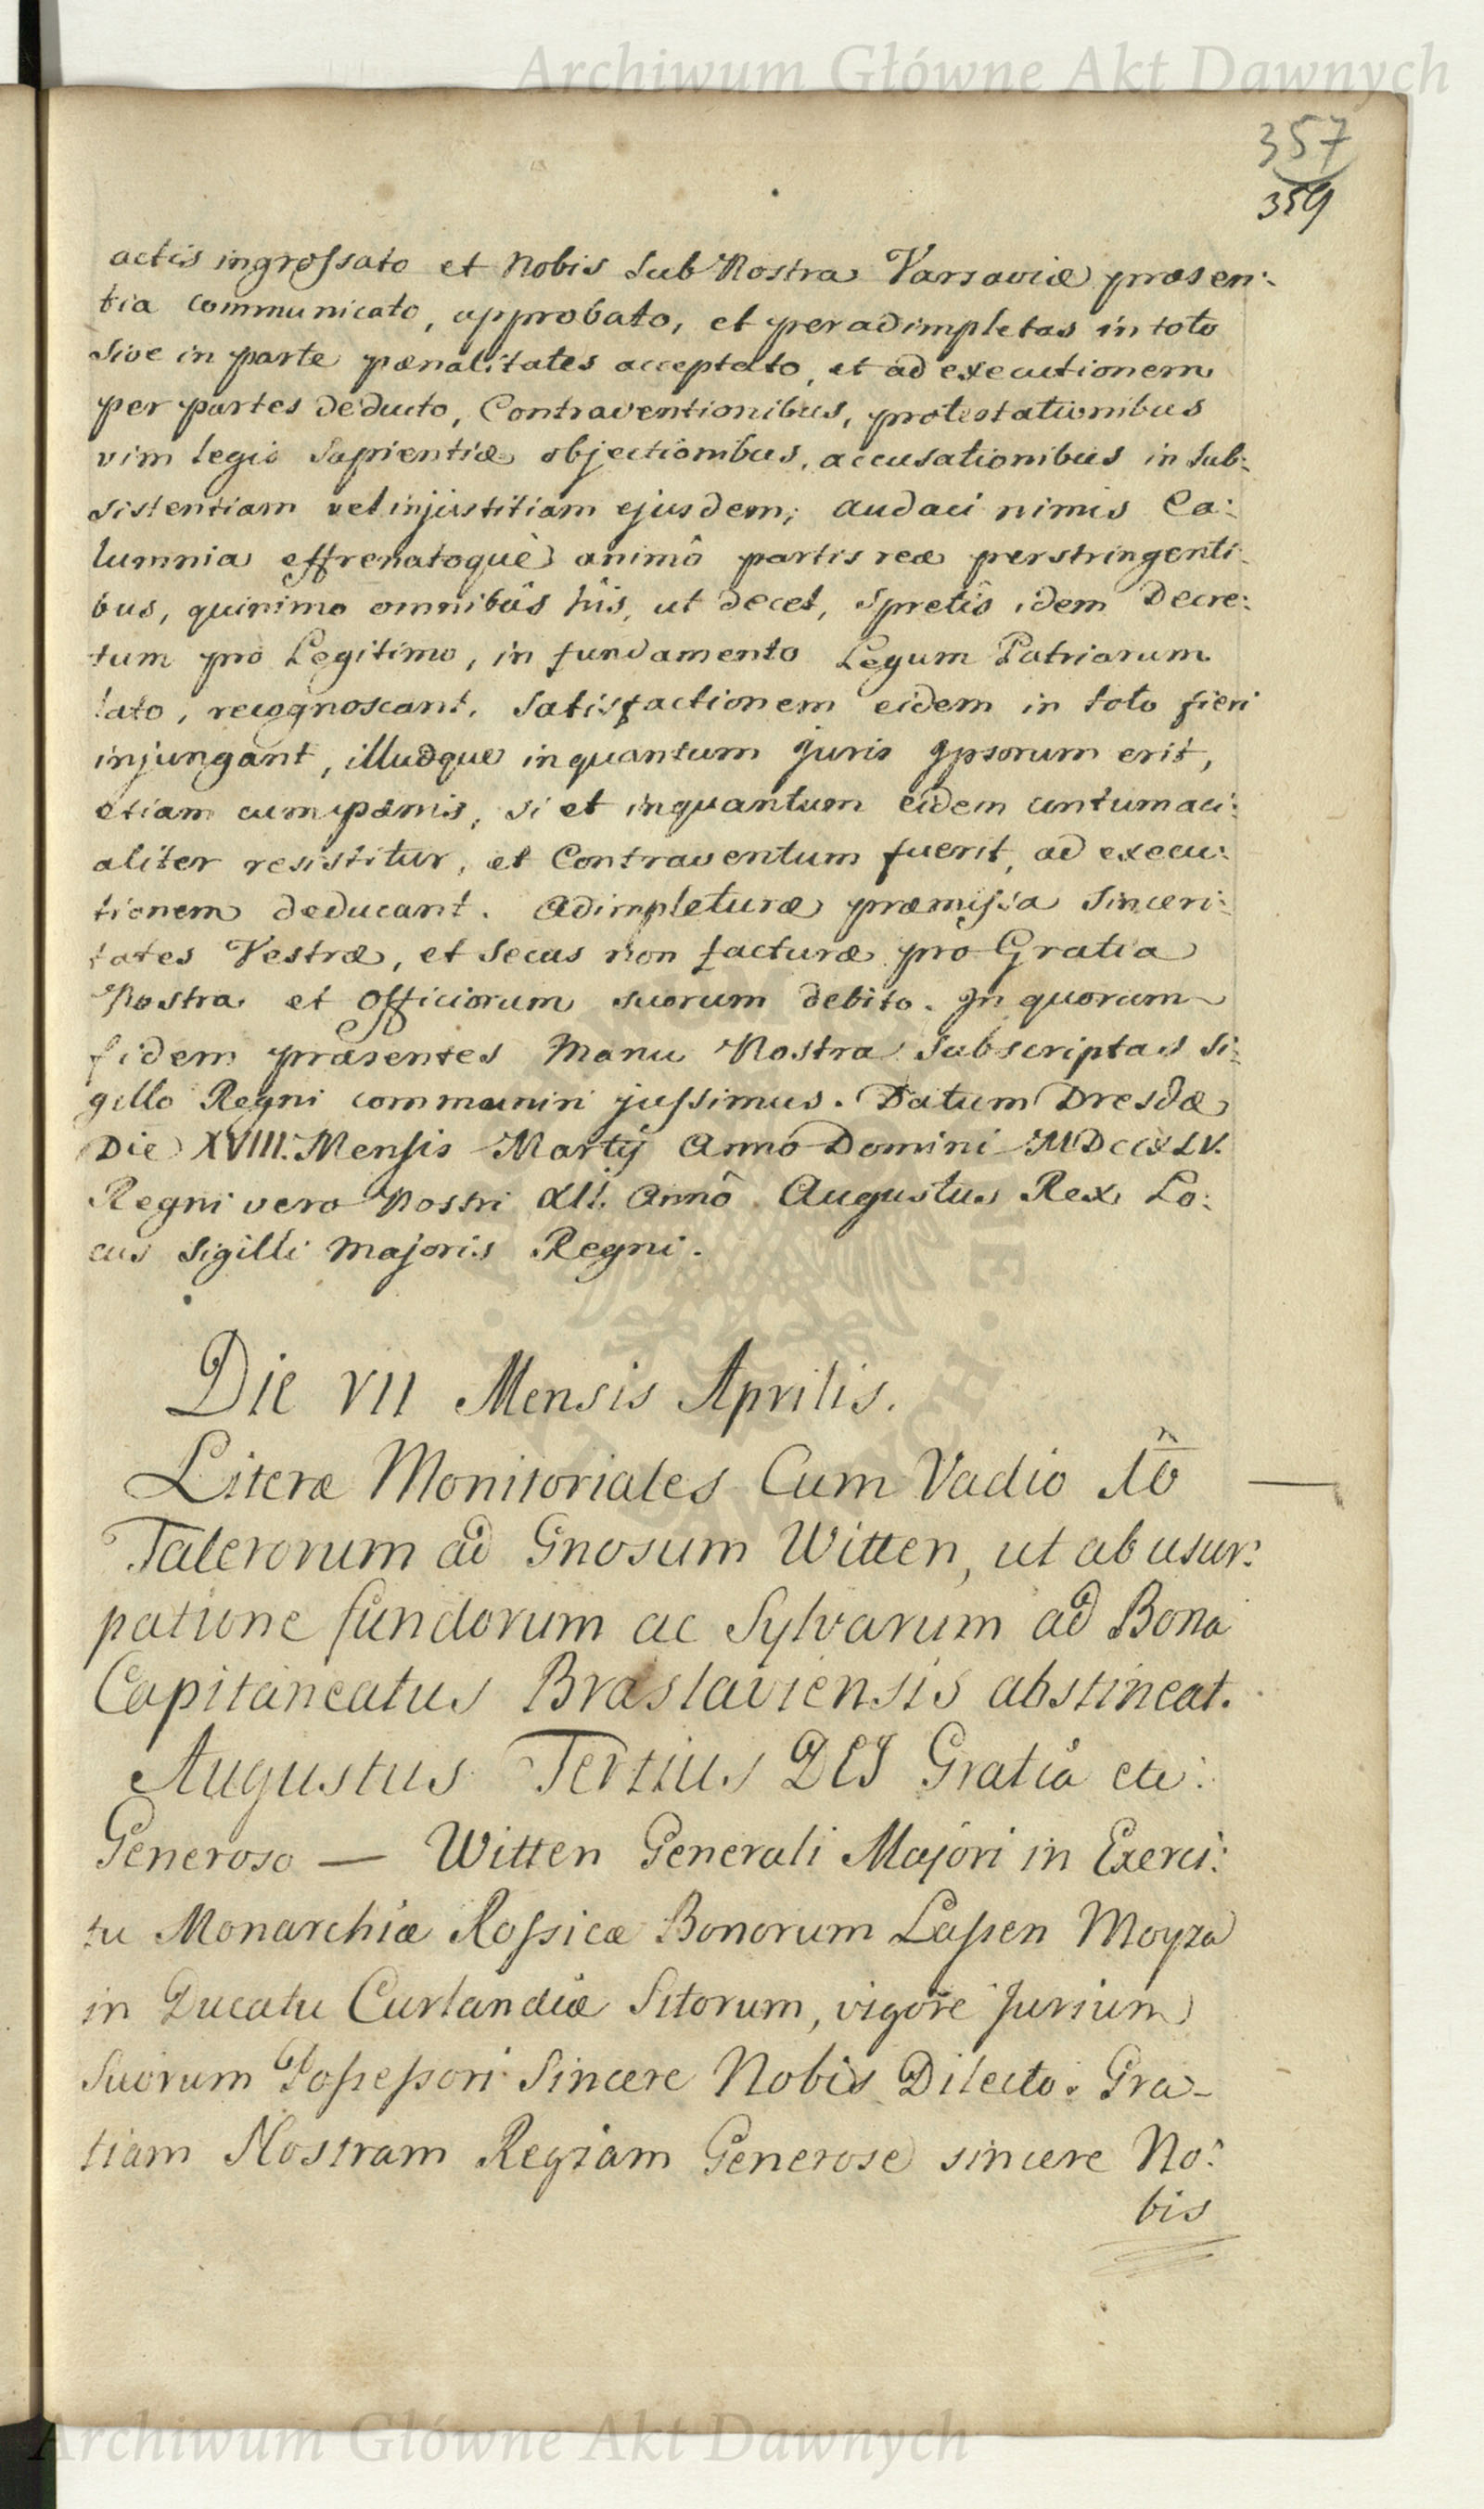 Archiwum Główne Akt Dawnych
357
359
actis ingrossato et Nobis sub Nostra Varsaviæ præsen:
tia communicato, approbato, et per adimpletas in toto
sive in parte pænalitates acceptato, et ad executionem
per partes deducto, Contraventionibus, protestationibus
vim legis sapientiæ objectionibus, accusationibus in sub:
sistentiam vel injustitiam ejusdem; audaci nimis Ca:
lumnia effrenatoquè animô partis reæ perstringenti:
bus, quinimo omnibûs hîs, ut decet, spretîs idem Decre:
tum pro Legitimo, in fundamento Legum Patriarum
lato, recognoscant, satisfactionem eidem in toto fieri
injungant, illudque inquantum Juris Ipsorum erit,
etiam cum pænis, si et inquantum eidem contumaci:
aliter resistitur, et Contraventum fuerit, ad execu:
tionem deducant. Adimpleturæ præmissa Sinceri:
tates Vestræ, et secus non facturæ pro Gratia
Nostra et Officiorum suorum debito. In quorum
fidem præsentes Manu Nostra subscriptas Si:
gillo Regni communiri jussimus. Datum Dresdæ
Die XVIII. Mensis Martij Anno Domini MDCCXLV.
Regni vero Nostri XII. Annô Augustus Rex Lo:
cus Sigilli Majoris Regni.
Die VII Mensis Aprilis.
Literæ Monitoriales Cum Vadio
Talerorum ad Gnosum Witten, ut ab usur:
patione fundorum ac Sylvarum ad Bona
Capitaneatus Braslaviensis abstineat.
Augustus Tertius DEI Gratiâ etc:
Generoso — Witten Generali Majori in Exerci:
tu Monarchiæ Rossicæ Bonorum Lassen Moyza
in Ducatu Curlandiæ Sitorum, vigore Jurium
Suorum Possessori Sincere Nobis Dilecto. Gra-
tiam Nostram Regiam Generose sincere No:
bis
Archiwum Główne Akt Dawnych